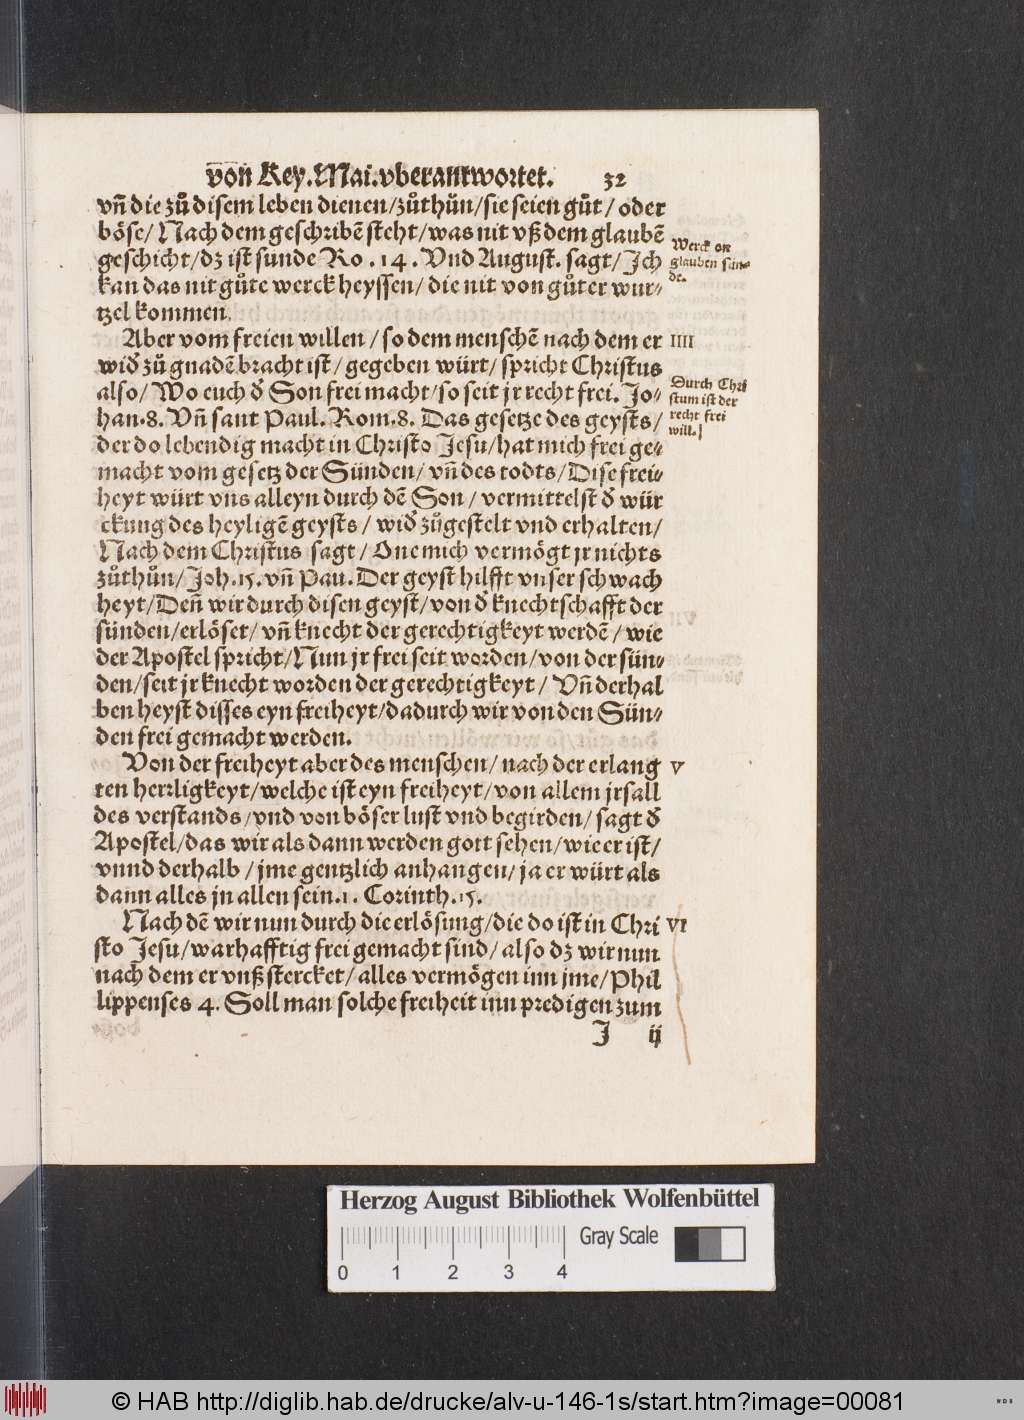 von Key. Mai. vberantwortet. 32
vñ die zů disem leben dienen/zůthůn/sie seien gůt/ oder
böse/ Nach dem geschribẽ steht/was nit vß dem glaubẽ
geschicht/dz ist sünde Ro .14. Vnd August. sagt/ Ich
kan das nit gůte werck heyssen/ die nit von gůter wur⸗
tzel kommen.
Werck on
glauben sün⸗
de.
Aber vom freien willen /so dem menschẽ nach dem er
IIII
wid' zů gnadẽ bracht ist/ gegeben würt/ spricht Christus
also/ Wo euch d' Son frei macht/so seit jr recht frei. Jo⸗
han.8. Vñ sant Paul. Rom.8. Das gesetze des geysts/
der do lebendig macht in Christo Jesu/hat mich frei ge⸗
macht vom gesetz der Sünden/ vñ des todts/Dise frei⸗
heyt würt vns alleyn durch dẽ Son/ vermittelst d' wür
ckung des heyligẽ geysts/ wid' zůgestelt vnd erhalten/
Nach dem Christus sagt/ One mich vermögt jr nichts
zůthůn/ Joh.15. vñ Pau. Der geyst hilfft vnser schwach
heyt/Deñ wir durch disen geyst/von d' knechtschafft der
sünden/erlöset/ vñ knecht der gerechtigkeyt werdẽ/ wie
der Apostel spricht/Nun jr frei seit worden/von der sün⸗
den/seit jr knecht worden der gerechtigkeyt/ Vñ derhal
ben heyst disses eyn freiheyt/dadurch wir von den Sün⸗
den frei gemacht werden.
Durch Chri
stum ist der
recht frei
will.
Von der freiheyt aber des menschen/ nach der erlang
V
ten herrligkeyt/welche ist eyn freiheyt/von allem jrsall
des verstands/vnd von böser lust vnd begirden/ sagt d'
Apostel/das wir als dann werden gott sehen/wie er ist/
vnnd derhalb /jme gentzlich anhangen/ ja er würt als
dann alles jn allen sein.1. Corinth.15.
Nach dẽ wir nun durch die erlösung/die do ist in Chri
VI
sto Jesu/warhafftig frei gemacht sind/ also dz wir nun
nach dem er vnß stercket/ alles vermögen inn jme/Phil
lippenses 4. Soll man solche freiheit inn predigen zum
J ij
Herzog August Bibliothek Wolfenbüttel
Gray Scale
0 1 2 3 4
© HAB http://diglib.hab.de/drucke/alv-u-146-1s/start.htm?image=00081